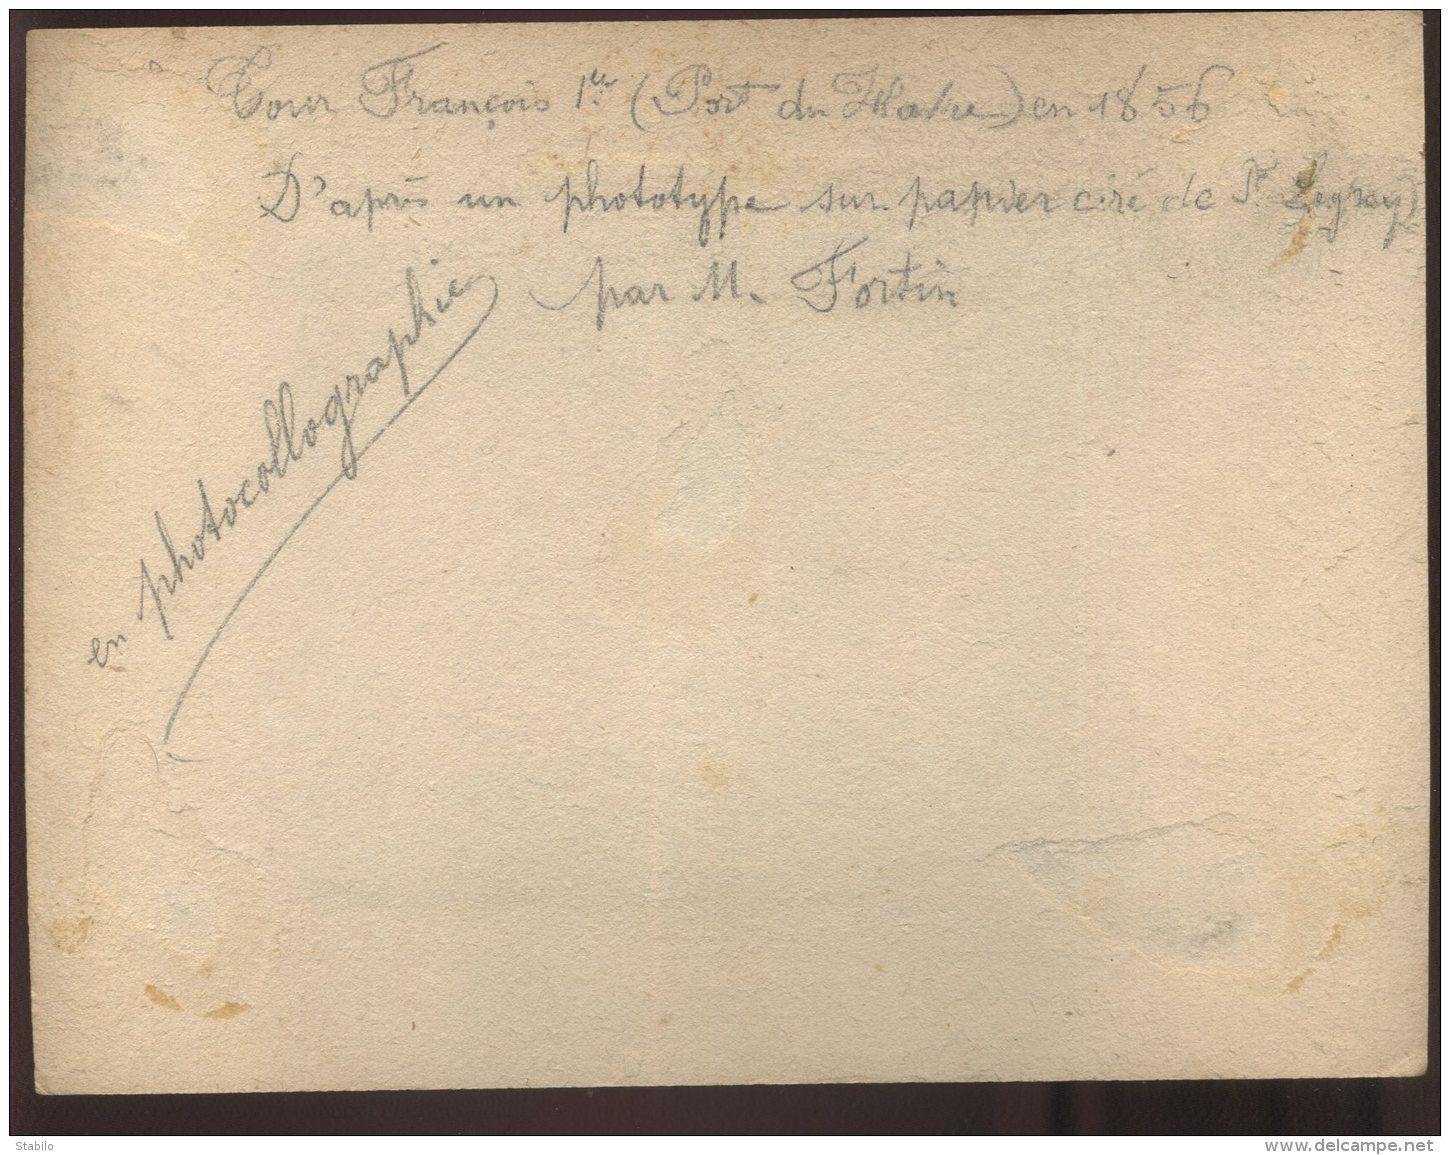 Tour François 1er (Port du Havre) en 1856
D'après un phototype sur papier ciré de Legray
par M. Fortin
en photocollographie
Stabilo
delcampe.net